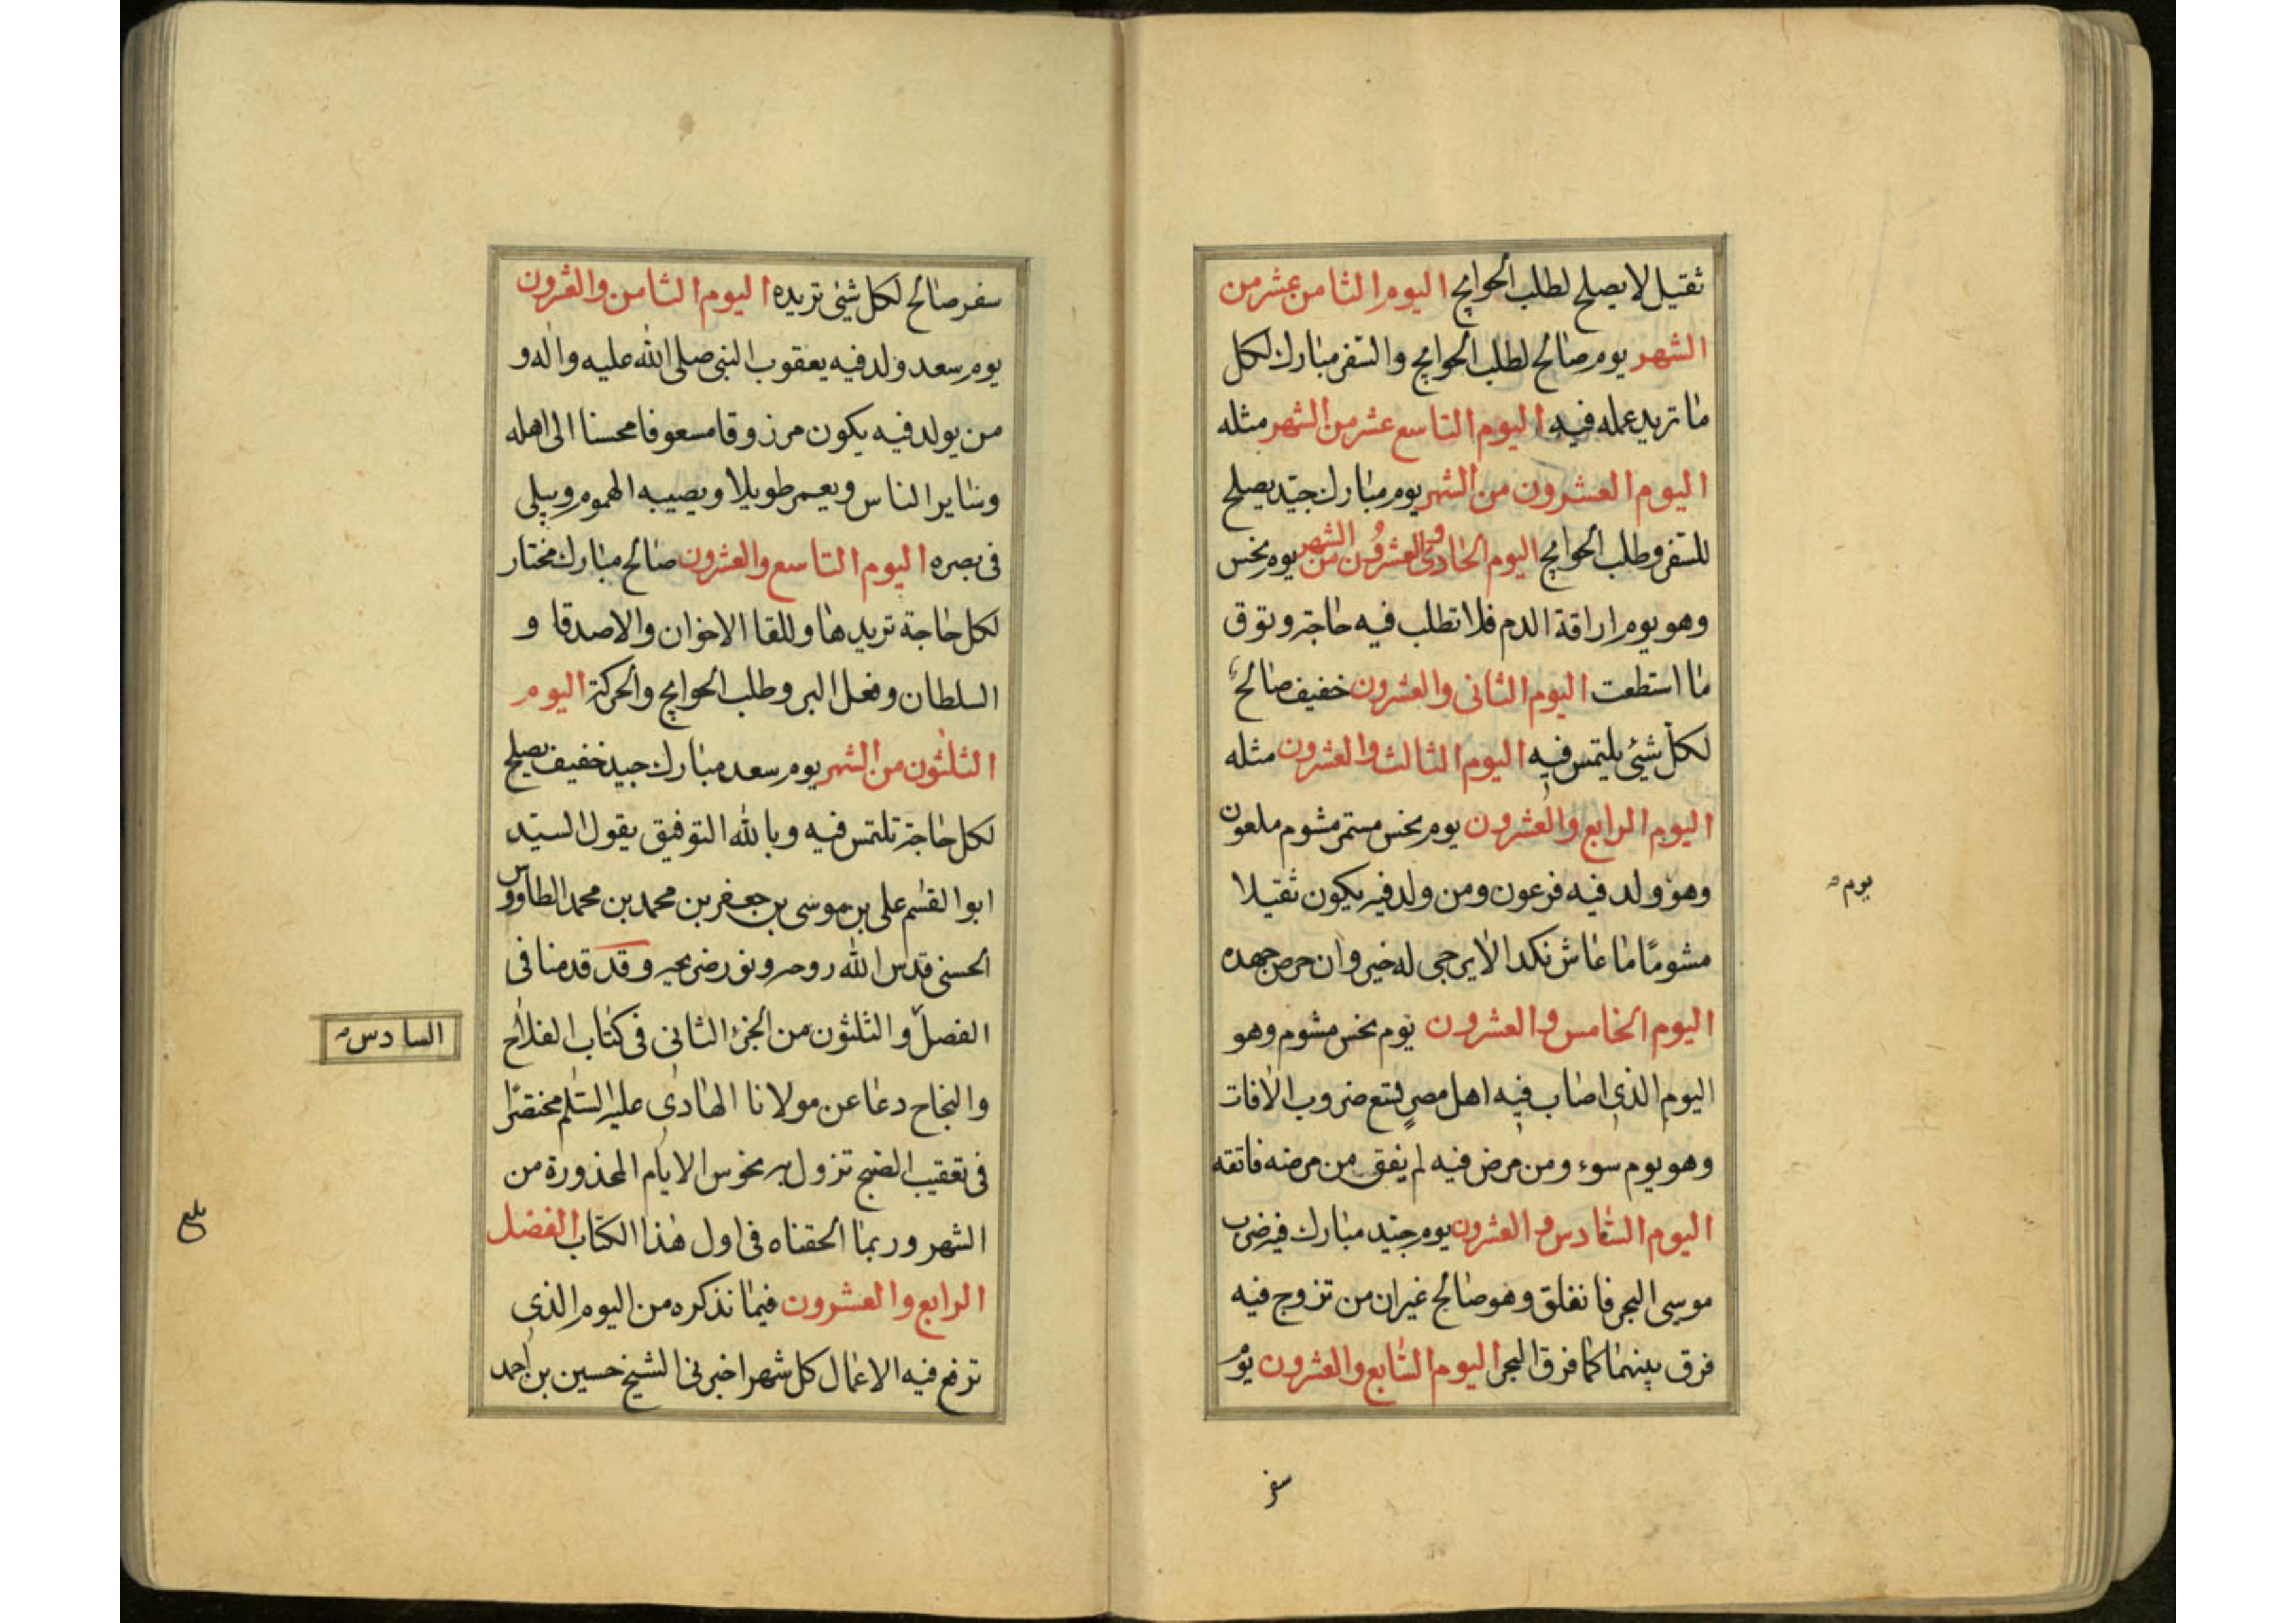 ثقيل لا يصلح لطلب الحوايج اليوم الثامن عشر من
الشهر يوم صالح لطلب الحوايج والسفر مبارك لكل
ما تريد عمله فيه اليوم التاسع عشر من الشهر مثله
اليوم العشرون من الشهر يوم مبارك جيّد يصلح
للسفر وطلب الحوايج اليوم الحادى والعشرون من الشهر يوم نحس
وهو يوم اراقة الدم فلا تطلب فيه حاجة وتوق
ما استطعت اليوم الثانى والعشرون خفيف صالح
لكل شيئ يلتمس فيه اليوم الثالث والعشرون مثله
اليوم الرابع والعشرون يوم نحس مستمر مشوم ملعون
وهو ولد فيه فرعون ومن ولد فيه يكون ثقيلا
مشومًا ما عاش نكدا لا يرجى له خير وان حرص جهده
اليوم الخامس والعشرون يوم نحس مشوم وهو
اليوم الذى اصاب فيه اهل مصر تسع ضروب الافات
وهو يوم سوء ومن مرض فيه لم يفق من مرضه فاتقه
اليوم السادس والعشرون يوم جيّد مبارك فيه ضرب
موسى البحر فانفلق وهو صالح غير ان من تزوج فيه
فرق بينهما كما فرق البحر اليوم السابع والعشرون يوم
يوم
سفر
سفر صالح لكل شيئ تريده اليوم الثامن والعشرون
يوم سعد ولد فيه يعقوب النبى صلى الله عليه واله و
من يولد فيه يكون مرزوقا مسعوفا محسنا الى اهله
وساير الناس ويعمر طويلا ويصيبه الهموم ويبلى
فى بصره اليوم التاسع والعشرون صالح مبارك مختار
لكل حاجة تريدها وللقا الاخوان والاصدقا و
السلطان وفعل البر وطلب الحوايج والحركة اليوم
الثلثون من الشهر يوم سعد مبارك جيد خفيف يصلح
لكل حاجة تلتمس فيه وبالله التوفيق يقول السيّد
ابو القسم على بن موسى بن جعفر بن محمد بن محمد الطاووس
الحسنى قدس الله روحه ونور ضريحه وقد قدمنا فى
الفصل والثلثون من الجزء الثانى فى كتاب الفلاح
والنجاح دعا عن مولانا الهادى عليه السلم مختصرًا
فى تعقيب الصبح تزول به نحوس الايام المحذورة من
الشهر وربما الحقناه فى اول هذا الكتاب الفصل
الرابع والعشرون فيما نذكره من اليوم الذى
ترفع فيه الاعمال كل شهر اخبرنى الشيخ حسين بن احمد
السادس
بلغ